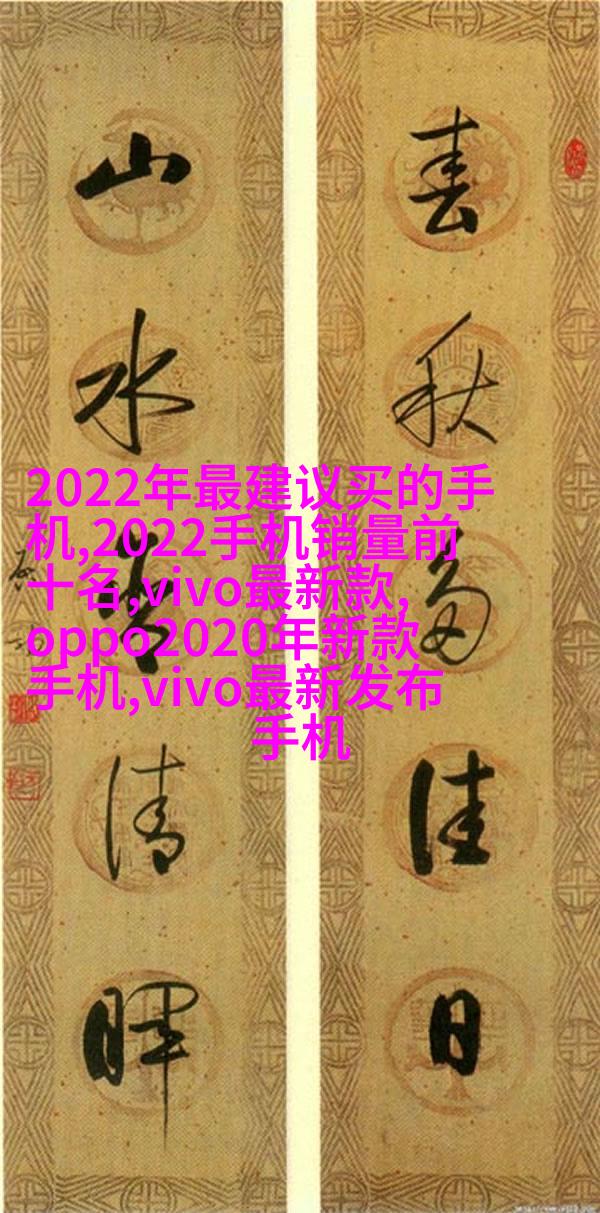 春秋多佳日
山水清暉
2022年最建议买的手
机,2022手机销量前
十名,vivo最新款,
oppo2020年新款
手机,vivo最新发布
手机